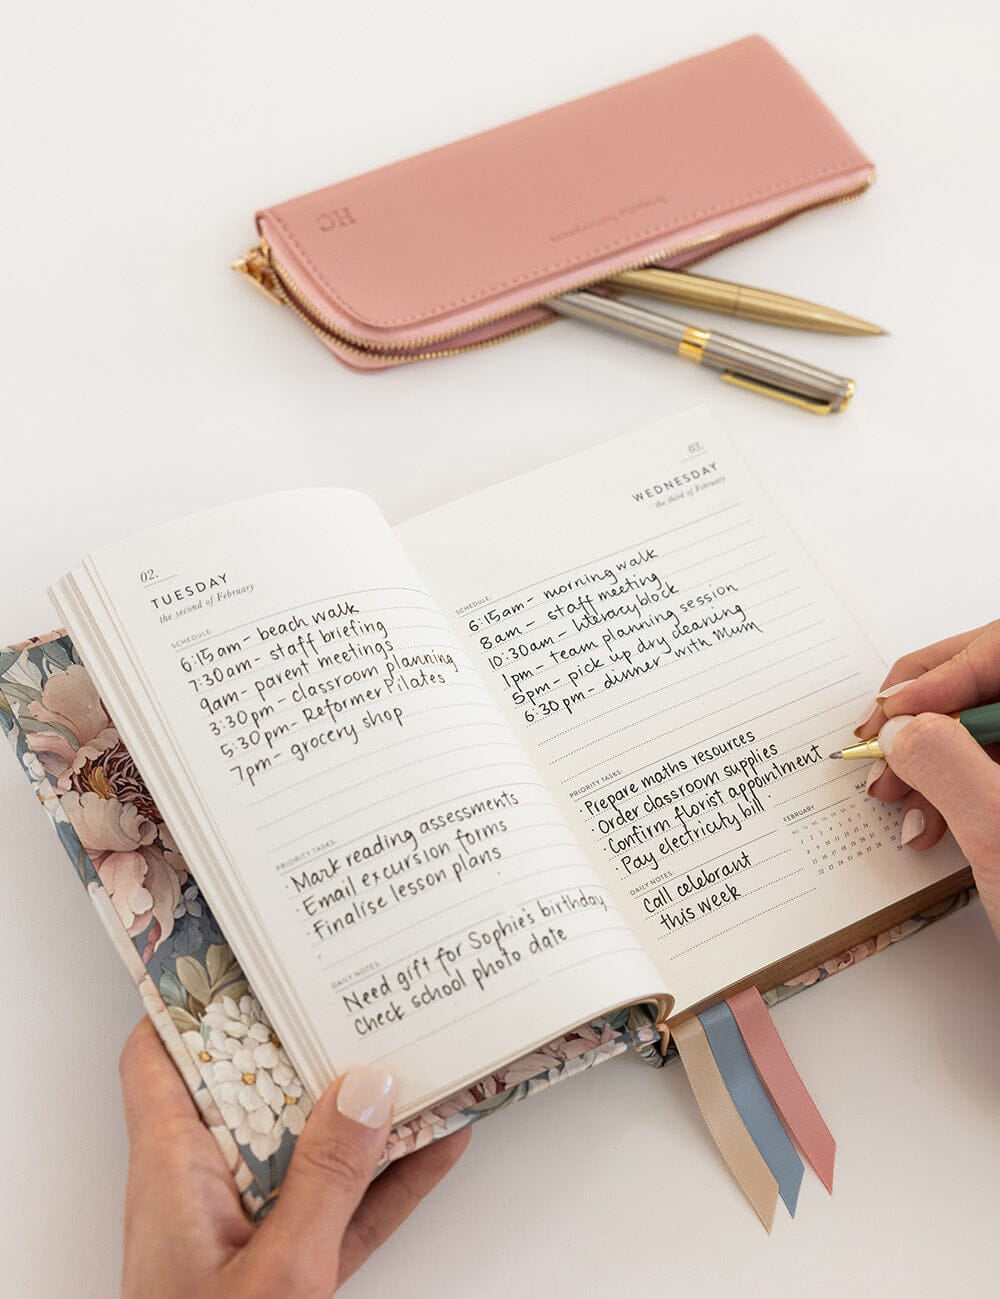 HC
02.
TUESDAY
the second of February
SCHEDULE:
6:15am - beach walk
7:30am - staff briefing
9am - parent meetings
3:30pm - classroom planning
5:30pm - Reformer Pilates
7pm - grocery shop
PRIORITY TASKS:
· Mark reading assessments
· Email excursion forms
· Finalise lesson plans
·
DAILY NOTES:
Need gift for Sophie's birthday
Check school photo date
03.
WEDNESDAY
the third of February
SCHEDULE:
6:15am - morning walk
8am - staff meeting
10:30am - literacy block
1pm - team planning session
5pm - pick up dry cleaning
6:30pm - dinner with Mum
PRIORITY TASKS:
· Prepare maths resources
· Order classroom supplies
· Confirm florist appointment
· Pay electricity bill
DAILY NOTES:
Call celebrant
this week
FEBRUARY